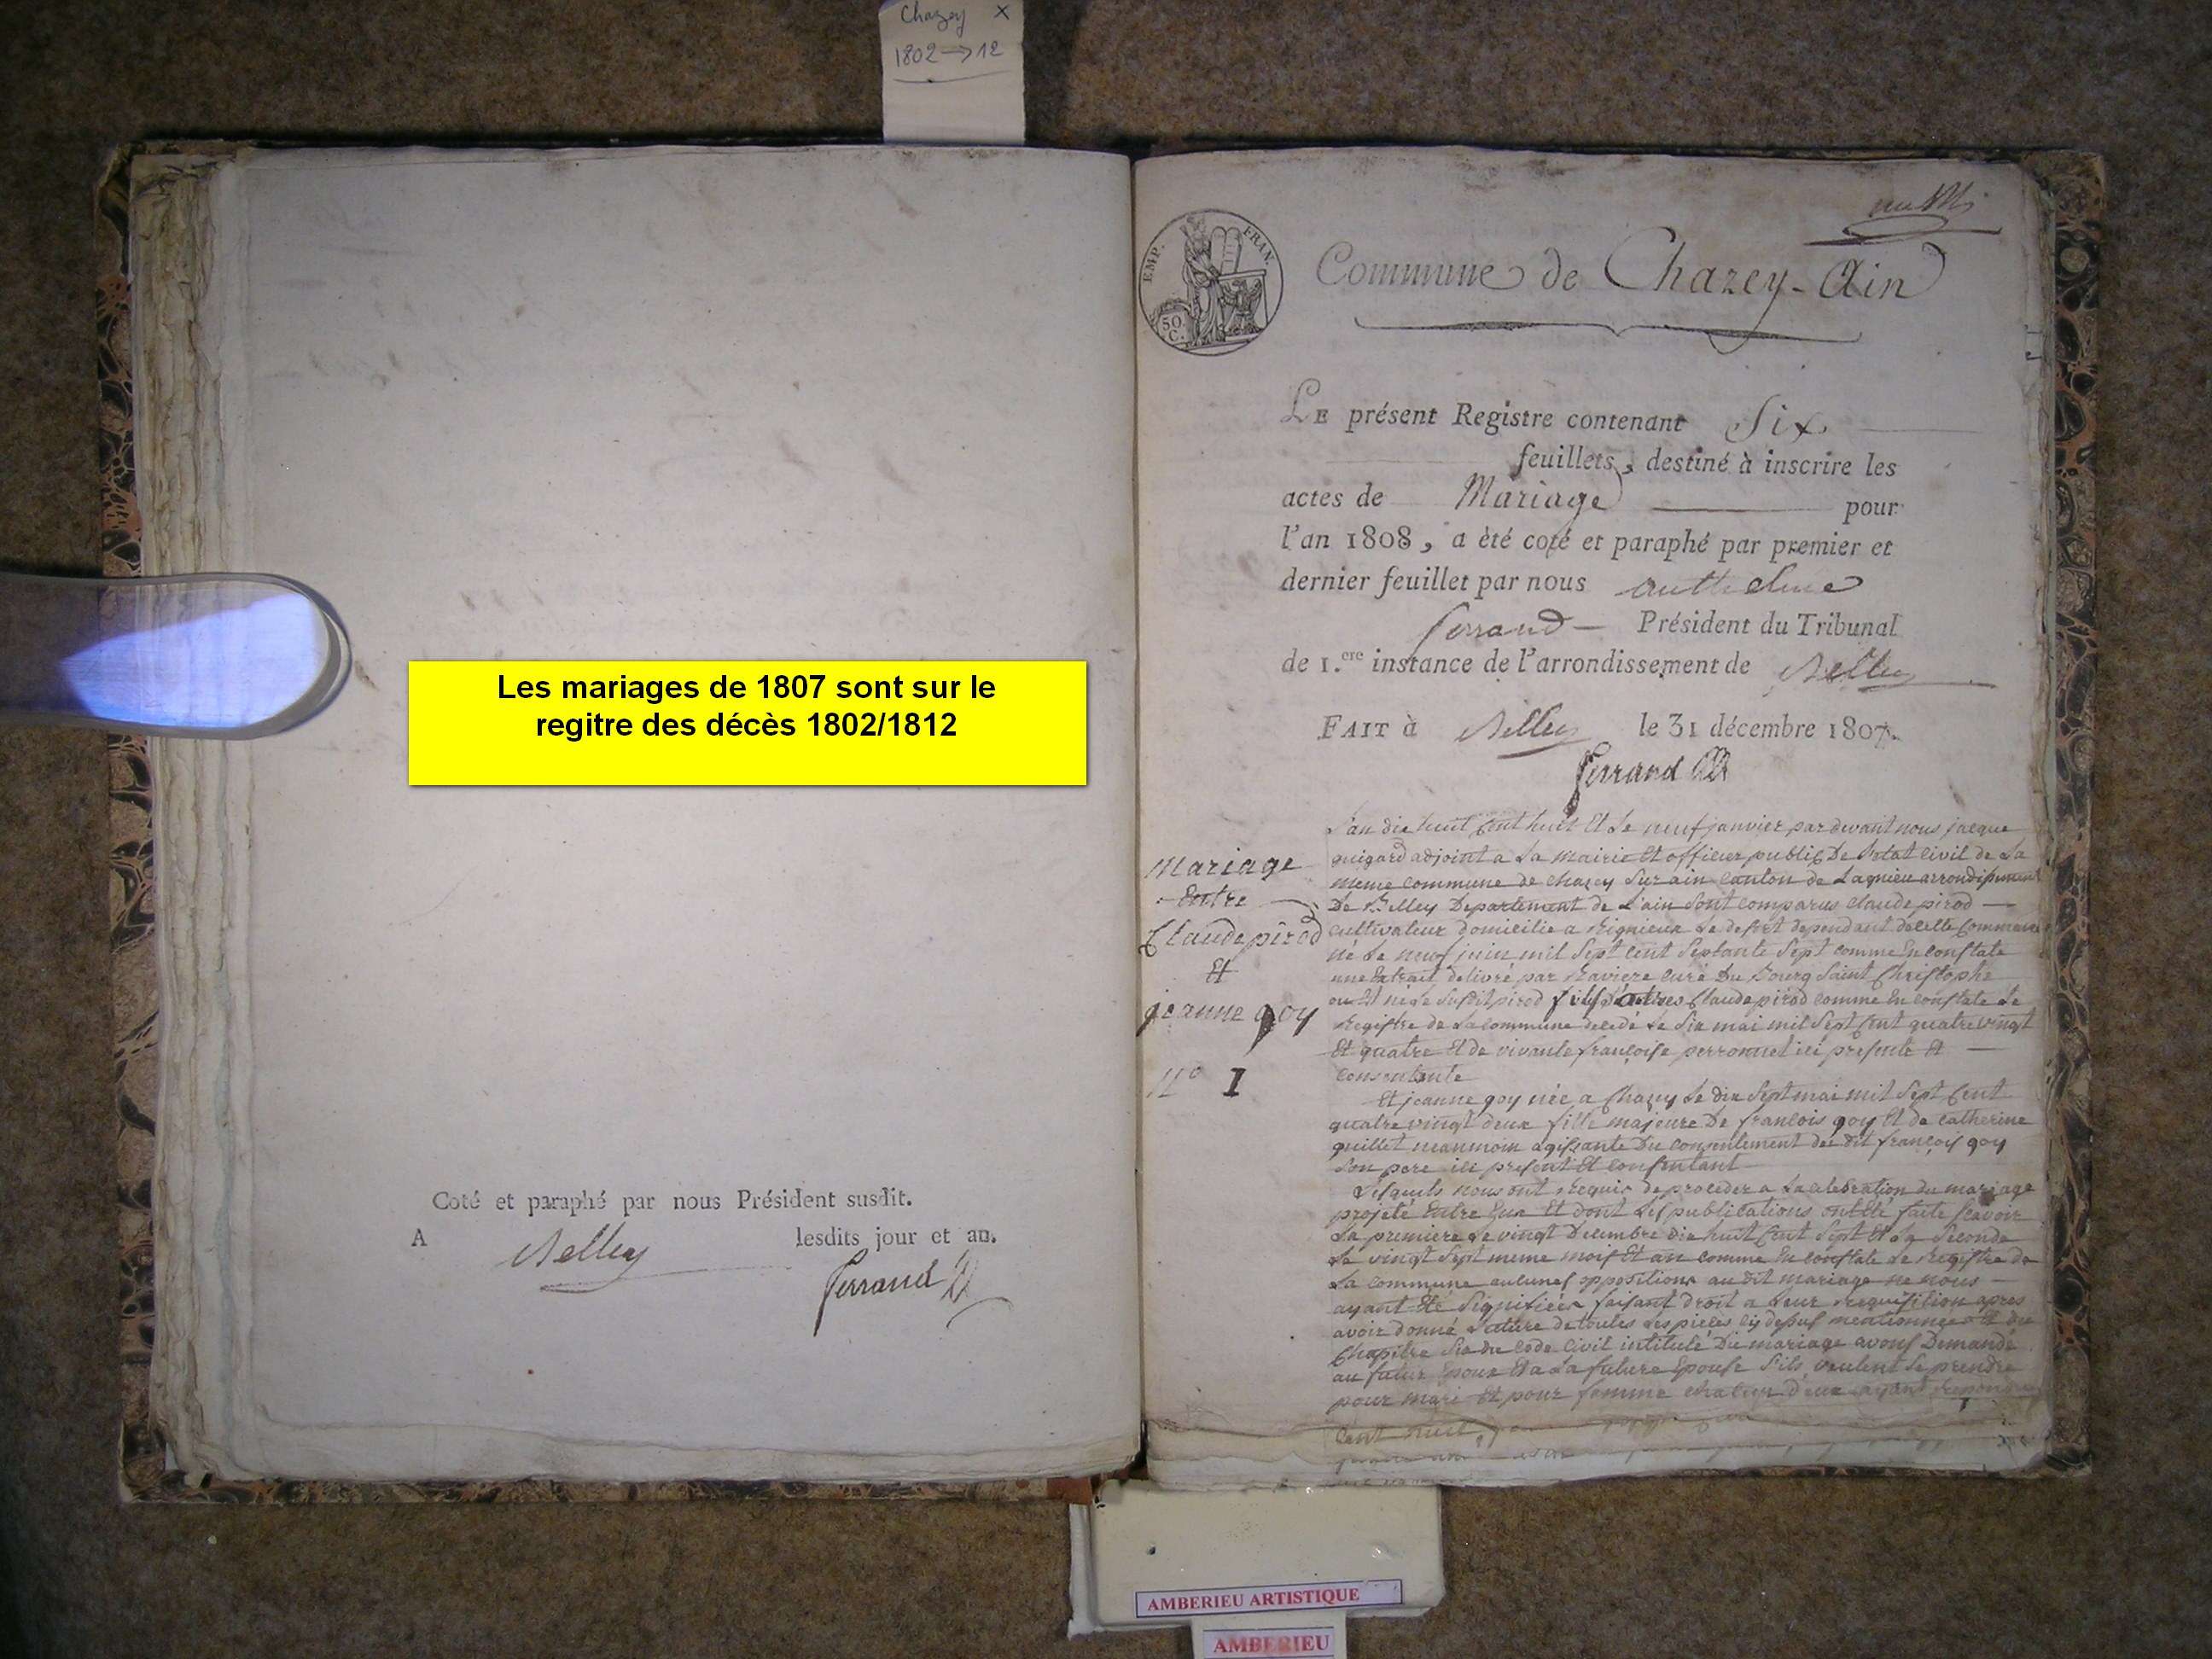 Chazey X
1802 → 12
Les mariages de 1807 sont sur le
regitre des décès 1802/1812
Coté et paraphé par nous Président susdit.
A Belley lesdits jour et an.
Ferrand
EMP. FRAN.
50 C.
Commune de Chazey-Ain
LE présent Registre contenant Six
feuillets, destiné à inscrire les
actes de Mariage pour
l'an 1808, a èté coté et paraphé par premier et
dernier feuillet par nous anthelme
ferrand Président du Tribunal
de 1.ere instance de l'arrondissement de Belley
FAIT à Belley le 31 décembre 1807.
Ferrand
Mariage
Entre
Claude pirod
Et
jeanne goy
N° 1
L'an dix huit Cent huit Et le neuf janvier par devant nous jacque
guigard adjoint a La Mairie Et officier public De L'état Civil de La
meme Commune de chazey Sur ain Canton de Lagnieu arrondissement
De Belley Departement de L'ain Sont Comparus Claude pirod
Cultivateur domicilié a Rignieux Le desert dependant de cette Commune
né Le neuf juin mil Sept Cent Septante Sept Comme En Constate
une Extrait delivré par Curé Du Bourg Saint Christophe
ou Est né Le Susdit pirod fils Claude pirod Comme En Constate Le
Registre de La Commune decedé Le Six mai mil Sept Cent quatre vingt
Et quatre Et de vivante francoise perronnet ici presente Et
Consentante
Et jeanne goy née a Chazey Le dix Sept mai mil Sept Cent
quatre vingt deux fille majeure De francois goy Et de Catherine
guillet neanmoin agissante Du Consentement de dit françois goy
Son pere ici present Et Consentant
Lesquels nous ont Requis de proceder a La Celebration du mariage
projeté Entre Eux Et dont Les publications ont Eté faite Scavoir
La premiere Le vingt Decembre dix huit Cent Sept Et La Seconde
Le vingt Sept meme mois Et an Comme En Constate Le Registre de
La Commune aucunes oppositions au dit mariage ne nous
ayant Eté Signifiées faisant droit a Leur Requisition apres
avoir donné Lecture de toutes Les pieces Cy dessus mentionnees Et du
Chapitre Six du Code Civil intitulé Du mariage avons Demandé
au futur Epoux Et a La future Epouse S'ils veulent Se prendre
pour mari Et pour femme chacun d'eux ayant
Cent huit
AMBERIEU ARTISTIQUE
AMBERIEU